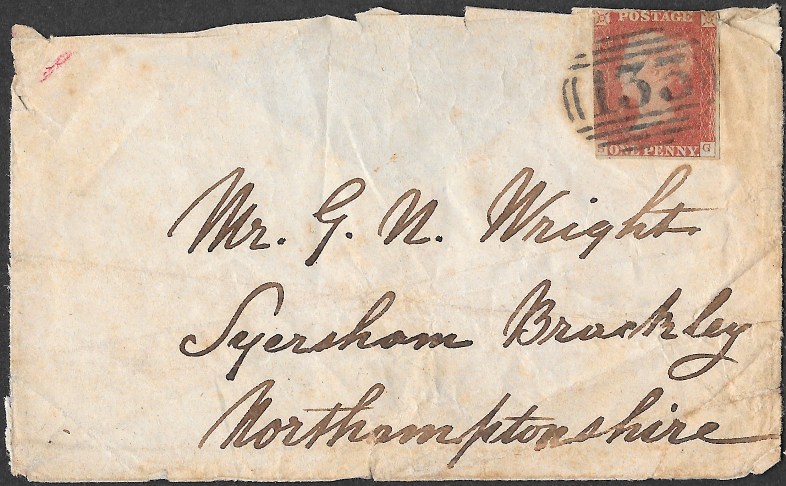 POSTAGE
133
S ONE PENNY. G
Mr. G. N. Wright
Syersham Brackley
Northamptonshire